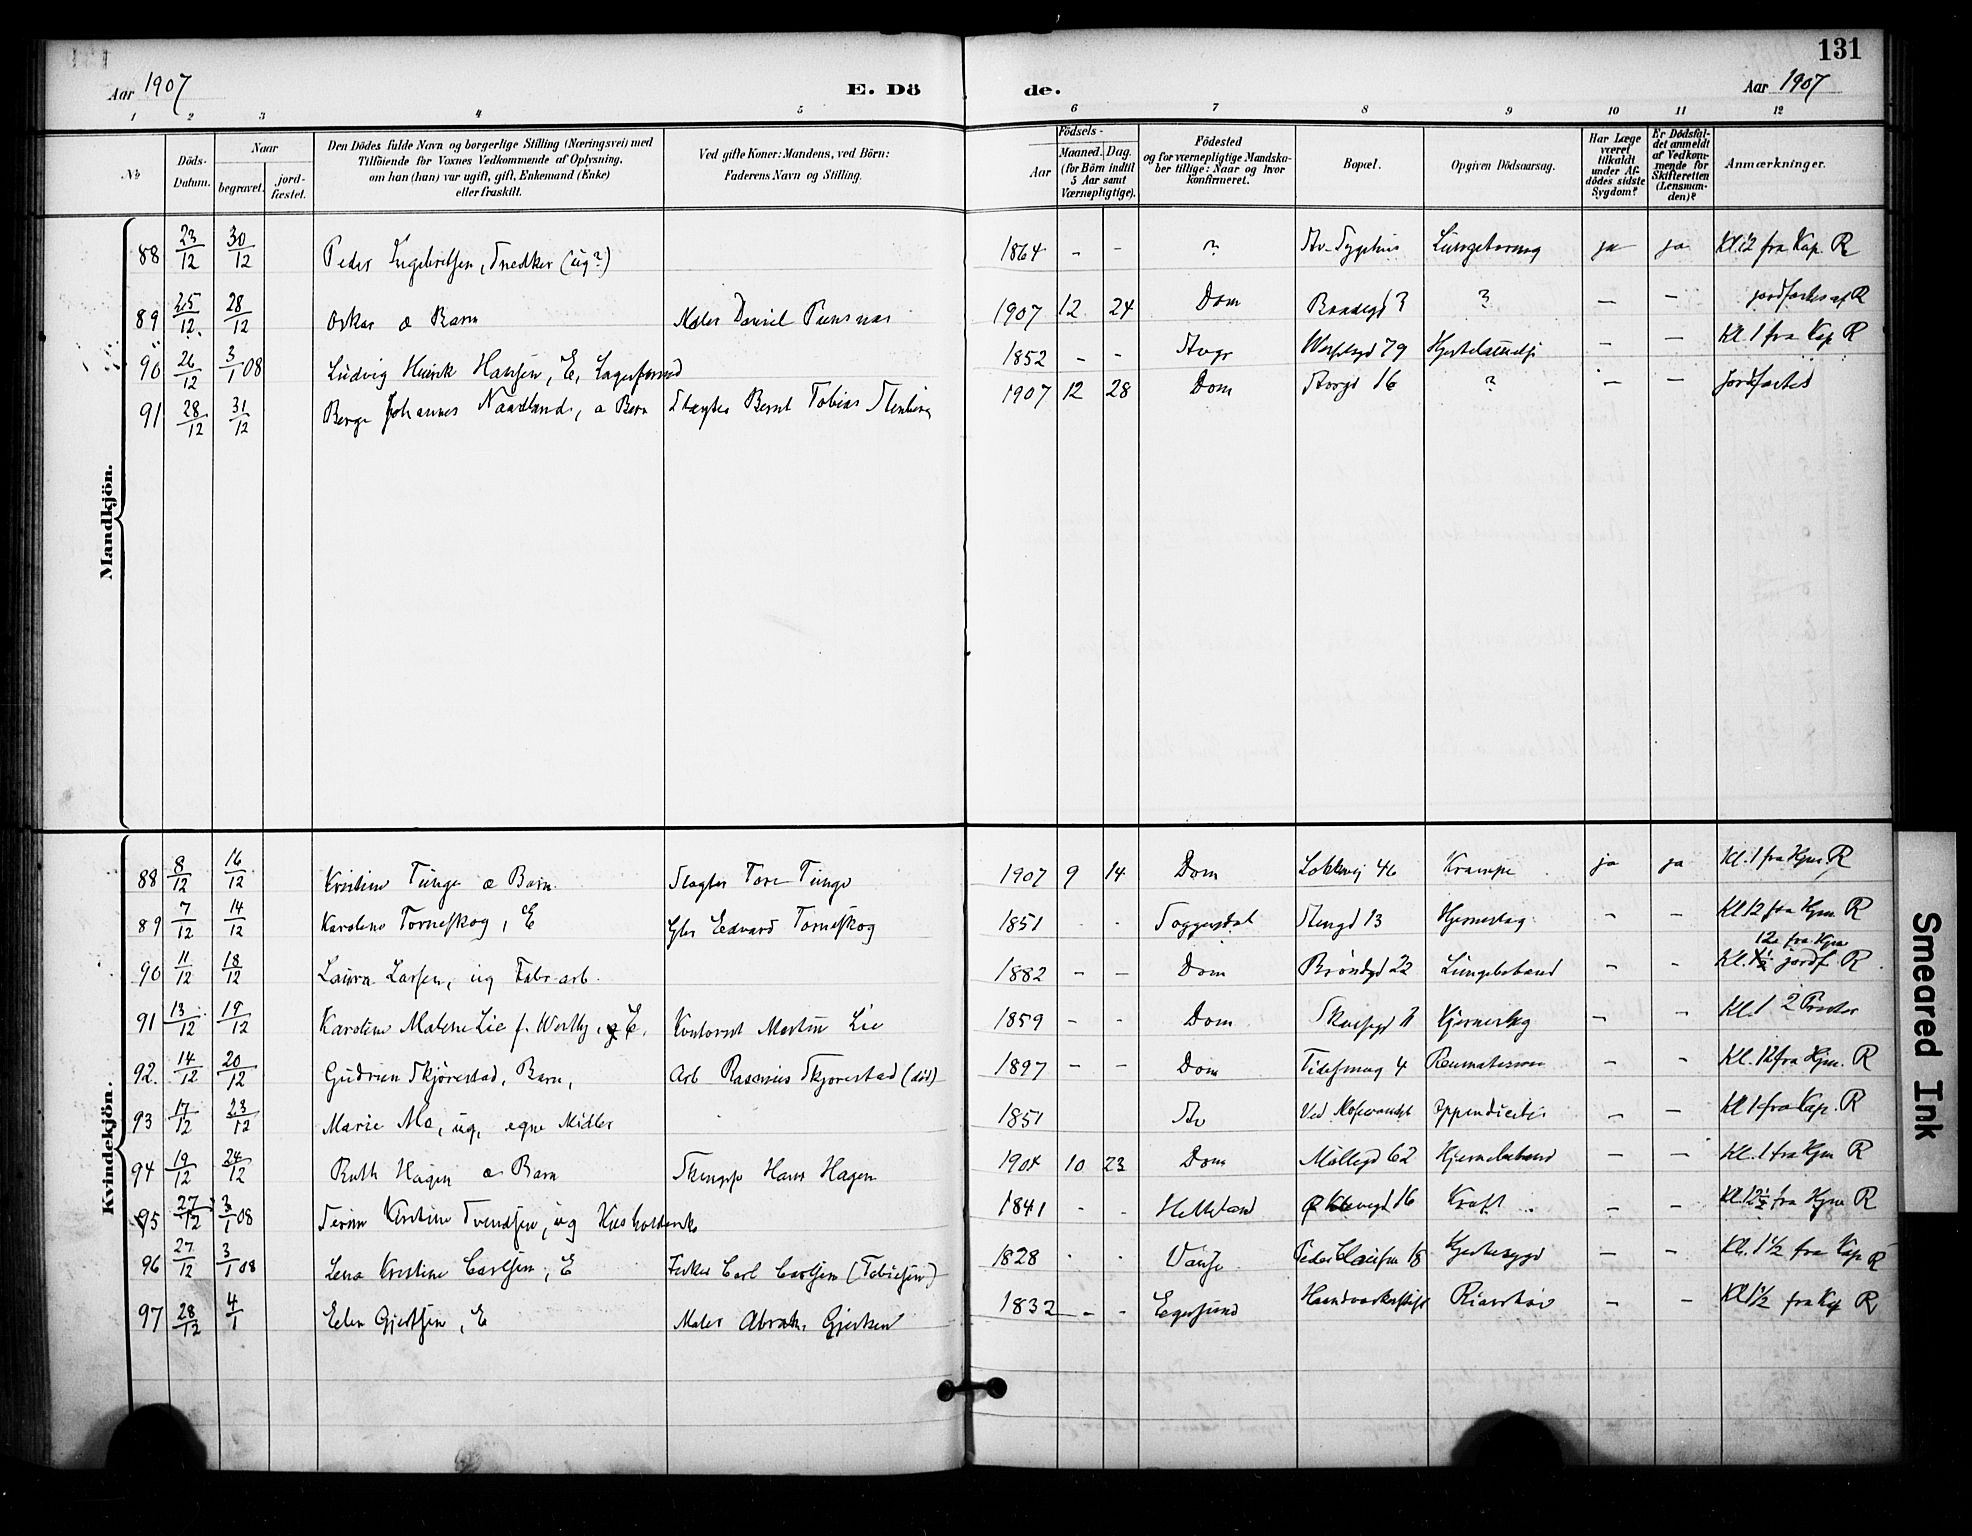 131
Aar 1907 E. Dö de. Aar 1907
1 2 3 4 5 6 7 8 9 10 11 12
No
Döds-Datum.
Naar
begravet. jord-fæstet.
Den Dödes fulde Navn og borgerlige Stilling (Næringsvei) med
Tilföiende for Voxnes Vedkommende af Oplysning,
om han (hun) var ugift, gift, Enkemand (Enke)
eller fraskilt.
Ved gifte Koner: Mandens, ved Börn:
Faderens Navn og Stilling.
Födsels-
Aar Maaned. Dag.
(for Börn indtil
5 Aar samt
Værnepligtige).
Födested
og for værnepligtige Mandska-
ber tillige: Naar og hvor
Konfirmeret.
Bopæl.
Opgiven Dödsaarsag.
Har Læge
været
tilkaldt
under Af-
dödes sidste
Sygdom?
Er Dödsfal-
det anmeldt
af Vedkom-
mende for
Skifteretten
(Lensman-
den)?
Anmærkninger.
Mandkjön.
88 23/12 30/12 Peder Ingebretsen, Snedker (ug?) 1864 - - ? Sv. Sygehus ja ja Kl. 12 fra Kap. R
89 25/12 28/12 Oskar æ Barn Maler Daniel 1907 12 24 Dom 3 ? — — jordfæstes af R
90 26/12 3/1 08 Ludvig Henrik Hansen, E, 1852 - - 79 — — Kl. 1 fra Kap R
91 28/12 31/12 Berge Johannes Naadland, æ Barn Slagter Bernt Tobias 1907 12 28 Dom Storgd 16 ? — — jordfæstes
Kvindekjön.
88 8/12 16/12 Kristine Tunge æ Barn Slagter Tore Tunge 1907 9 14 Dom Lokkevj 46 Krampe ja ja Kl. 1 fra Hjm. R
89 7/12 14/12 Karoline Torneskog, E Edvard Torneskog 1851 - - Soggendal Stengd 13 Hjerneslag - - Kl. 12 fra Hjm. R
90 11/12 18/12 Laura Larsen, ug Fabr arb. 1882 - - Dom Bröndgd 22 - - 12 fra Hjm
Kl. 1½ jordf. R
91 13/12 19/12 Karoline Malene Lie f. E. Kontorist Martin Lie 1859 - - Dom Hjerneslag - - Kl. 1 2 Prester
92. 14/12 20/12 Gudrun Skjörestad, Barn, Arb Rasmus Skjörestad (död) 1897 - - Dom 4 - - Kl. 12 fra Hjm. R
93 17/12 23/12 Marie Mo, ug, egne Midler 1851 Sv Ved - - Kl 1 fra Kap. R
94 19/12 24/12 Ruth Hagen æ Barn Hans Hagen 1904 10 23 Dom Möllegd 62 - - Kl. 1 fra Hjm R
95 27/12 3/1 08 Kristine Svendsen, ug 1841 - - Helleland 16 Kræft - - Kl. 12½ fra Hjm R
96 27/12 3/1 08 Lena Kristine Carlsen, E Fisker Carl Carlsen (Tobiesen) 1828 - - Vanse Peder Clausen 18 - - Kl. 1½ fra Kap R
97 28/12 4/1 Elen Gjertsen, E Maler Abrah. Gjertsen 1832 - - Egersund - - Kl 1½ fra Kap R
Smeared Ink